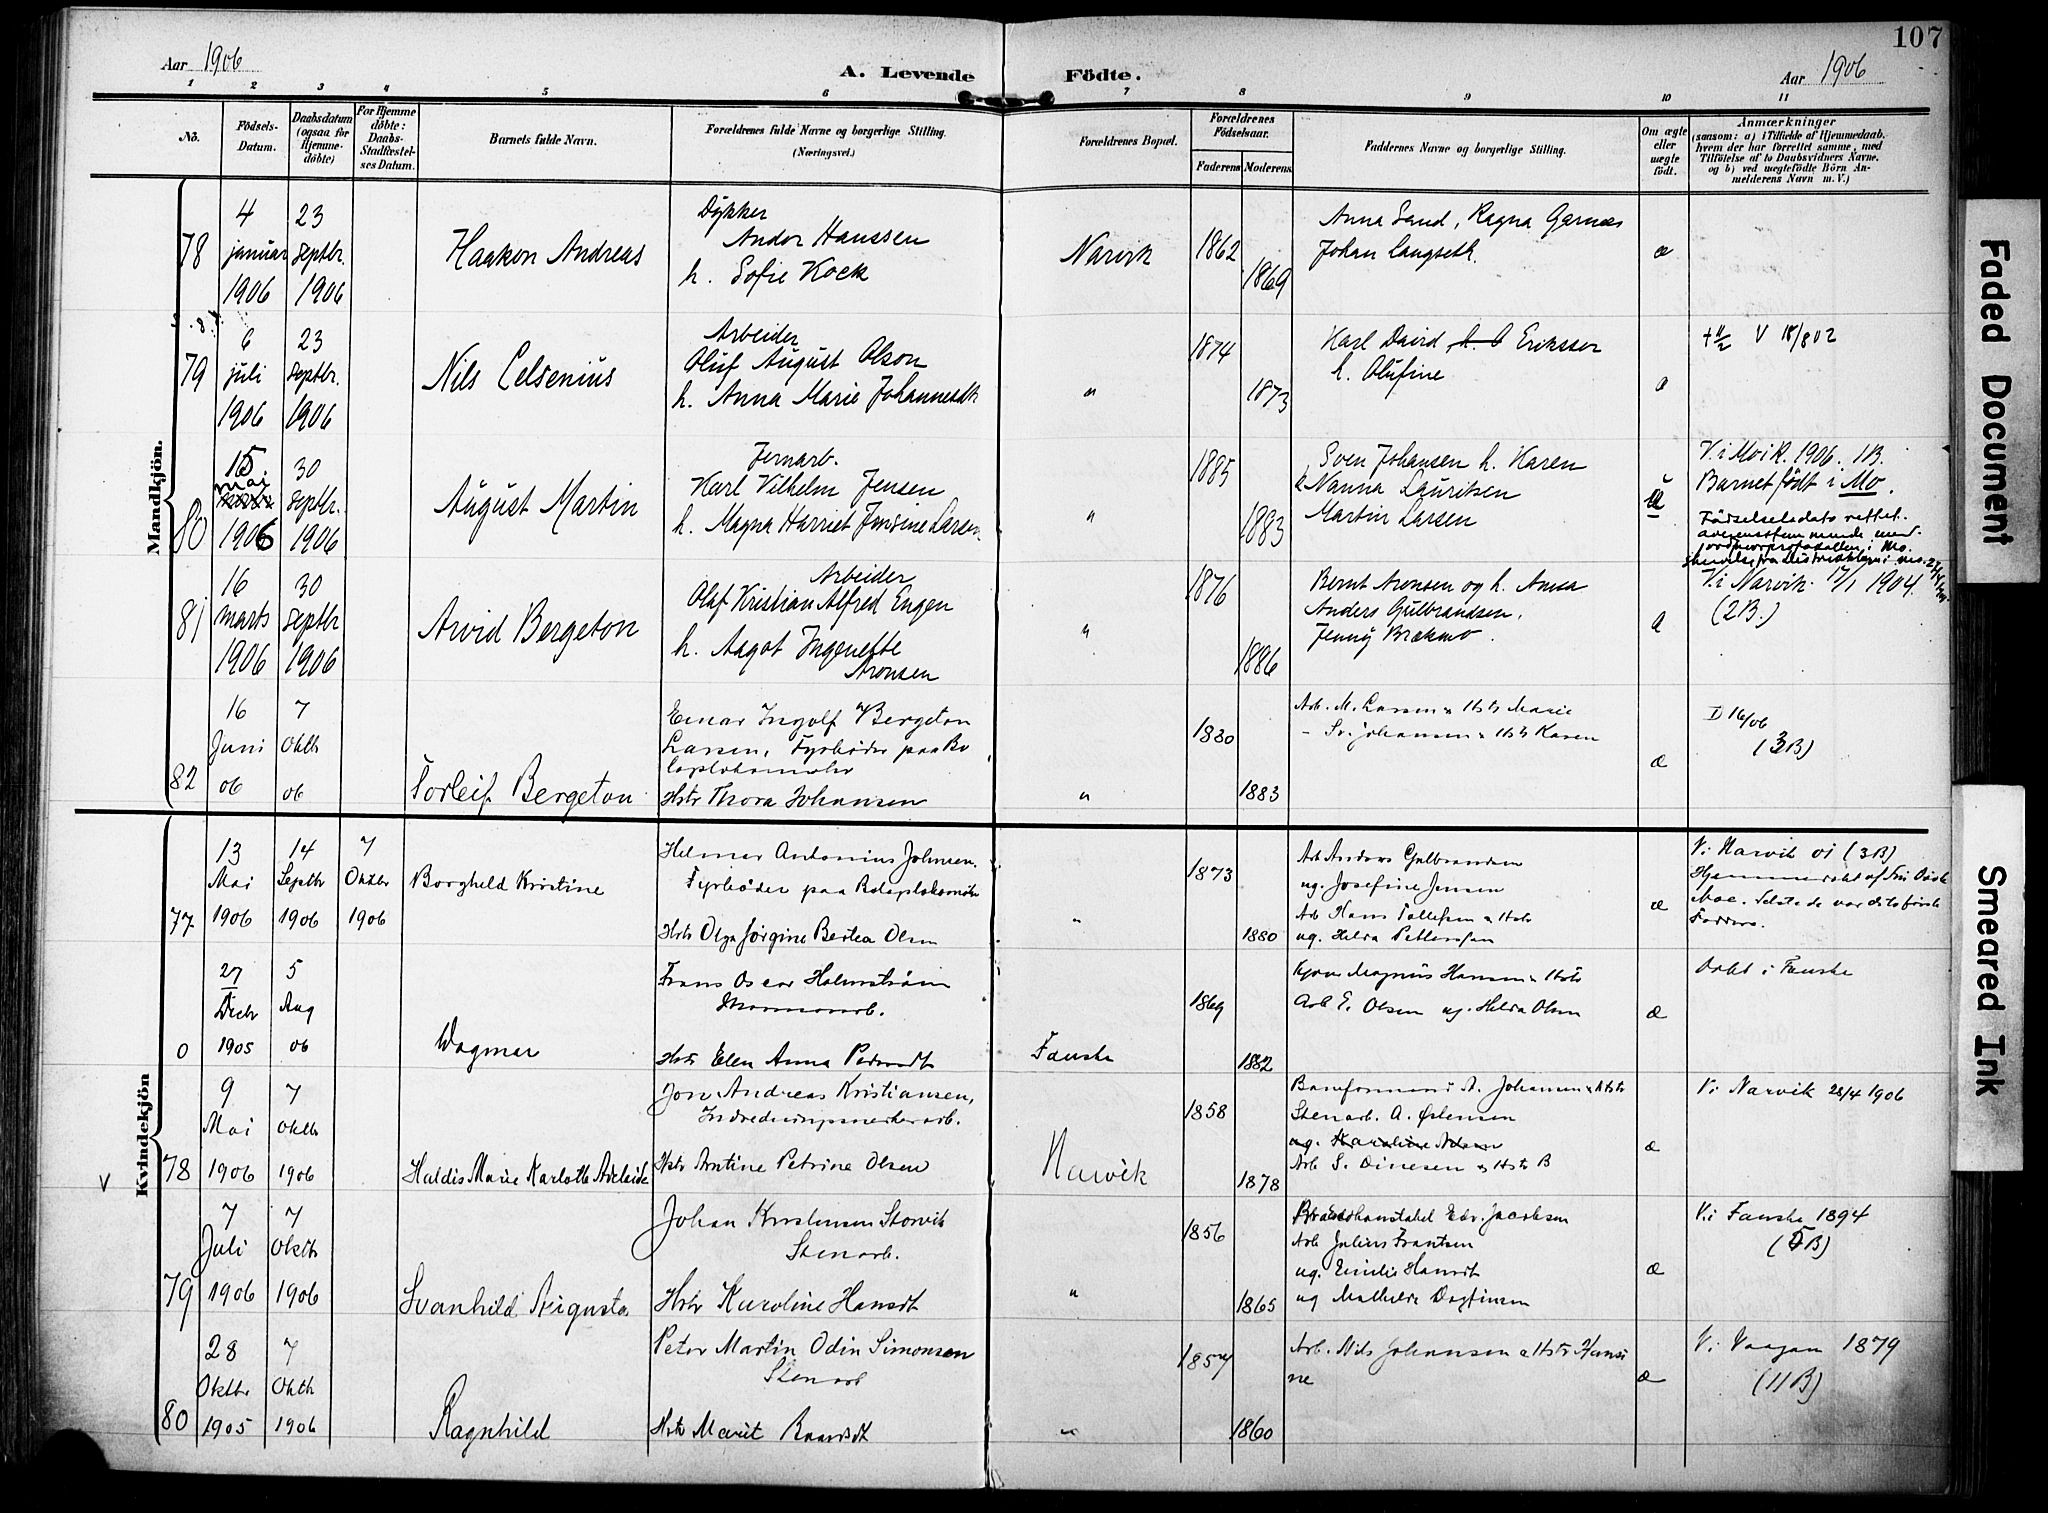 107
Aar 1906
A. Levende Födte.
Aar 1906
1 2 3 4 5 6 7 8 9 10 11
No. Födsels-Datum. Daabsdatum (ogsaa for Hjemme-döbte) For Hjemme döbte: Daabs-Stadfæstel-ses Datum. Barnets fulde Navn. Forældrenes fulde Navne og borgerlige Stilling. (Næringsvei.) Forældrenes Bopæl. Forældrenes Födselsaar. Faderens Moderens Faddernes Navne og borgerlige Stilling. Om ægte eller uægte födt. Anmærkninger (saasom: a) i Tilfælde af Hjemmedaab. hvem der har forrettet samme, med Tilföielse af to Daabsvidners Navne. og b) ved uægtefödte Börn An-melderens Navn m. V.)
Mandkjön.
78
4 januar 1906
23 Septbr. 1906
Haakon Andreas
Dykker
Andor Hanssen
h. Sofie Kock
Narvik
1862
1869
Anna Sand, Ragna Garnæs
Johan Langseth.
æ
79
6 juli 1906
23 Septbr. 1906
Nils Celsenius
Arbeider
Oluf August Olson
h. Anna Marie Johannesdt
"
1874
1873
Karl David Eriksser
h. Olufine
V 18/8 02
80
15. mai 1906
30 Septbr. 1906
August Martin
Jernarb.
Karl Vilhelm Jensen
h. Magna Harriet Jensine Larsen
"
1885
1883
Sven Johansen h. Karen
Nanna Lauritsen
Martin Larsen
V. i Mvik. 1906. 1B.
Barnet födt i Mo.
Födselsdato rettet
81
16 marts 1906
30 Septbr 1906
Arvid Bergeton
Arbeider
Olaf Kristian Alfred Engen
h. Aagot Ingenette
Aronsen
"
1876
1886
Bernt Aronsen og h. Anna
Anders Gulbrandsen,
Jenny Brækmo.
V. i Narvik. 17/1 1904.
(2B.)
82
16 Juni 06
7 Oktb 06
Torleif Bergeton
Einar Ingolf Bergeton
Larsen, Fyrböder paa Bo
Hstr Thora Johansen
"
1880
1883
Arb. M. Larsen & Hstr Marie
- Sv. Johansen & Hstr Karen
æ
D 16/06
(3B)
Kvindekjön
77
13 Mai 1906
14 Septbr 1906
7 Oktbr 1906
Borghild Kristine
Helmer Antonius Johnsen.
Fyrböder paa
Hstr Olga Jörgine Bertea Olsen
"
1873
1880
Arb Anders Gulbrandsen
ug. Josefine Jensen
Arb Hans Tollefsen & Hstr
ug. Helda Pettersen
æ
V. i Narvik 01 (3B)
0
27 Decbr 1905
5 Aug 06
Dagmar
Frans Oscar Holmström
Hstr Elen Anna
Fauske
1869
1882
Magnus Hansen & Hstr
Arb E. Olsen ug. Helda Olsen
æ
Döbt i Fauske
V
78
9 Mai 1906
7 Oktb 1906
Haldis Marie Karlotte Adelaide
Jon Andreas Kristiansen,
Hstr Antine Petrine Olsen
Narvik
1858
1878
Baneformand A. Johansen & Hstr
Stenarb. A. Östensen
Arb S. Dinesen & Hstr B
æ
V. i Narvik 28/4 1906
79
7 Juli 1906
7 Oktb 1906
Svanhild Augusta
Johan Kristensen Storvik
Stenarb.
Hstr Karoline Hansdt
"
1856
1865
Brandkonstabel Edv. Jacobsen
Arb Julius Frantsen
ug. Emilie Hansdt
ug Mathilde Dagfinsen
æ
V. i Fauske 1894
80
28 Oktbr 1905
7 Oktb 1906
Ragnhild
Peter Martin Odin Simonsen
Stenarb
Hstr Marit
"
1857
1860
Arb. Nils Johansen & Hstr Hansi
ne
æ
V. i Vaagan 1879
(11B)
Faded Document
Smeared Ink